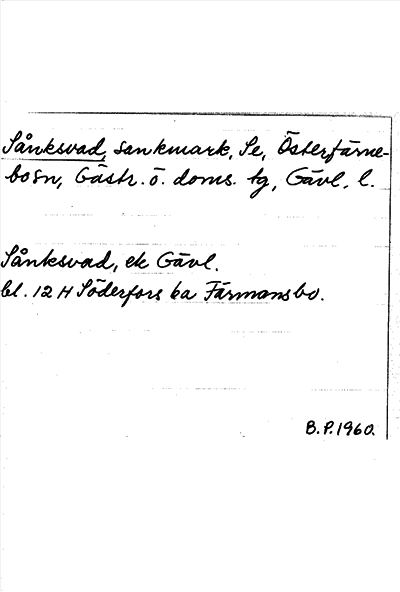 Sånksvad, sankmark, Se, Österfärne-
bosn, Gästr. ö. doms. tg, Gävl. l.
Sånksvad, ek Gävl.
bl. 12 H Söderfors ka Färmansbo.
B.P. 1960.